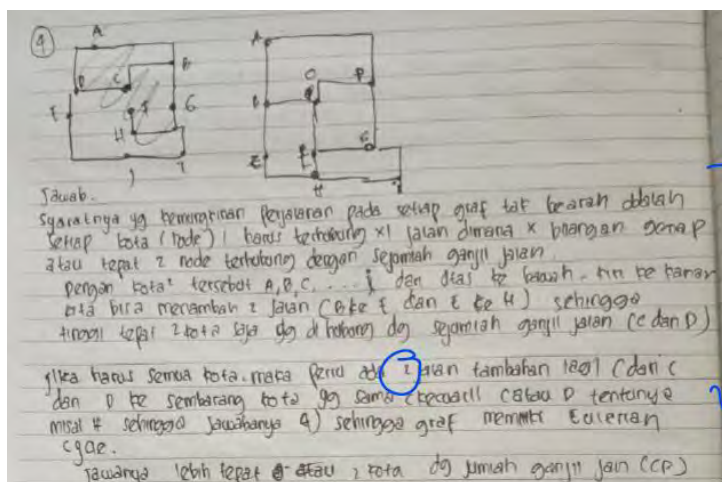 4
A
D C B
E F G
H
J I
A
O P
B
E F G
H
Jawab.
Syaratnya yg kemungkinan perjalanan pada setiap graf tak berarah adalah
setiap kota (node) harus terhubung x jalan dimana x bilangan genap
atau tepat 2 node terhubung dengan sejumlah ganjil jalan.
Dengan kota² tersebut A, B, C, ... dan atas ke bawah, kiri ke kanan
kita bisa menambah 2 jalan (B ke E dan E ke H) sehingga
tinggal tepat 2 kota saja dg di hubung dg sejumlah ganjil jalan (C dan D)
Jika harus semua kota. maka perlu ada 2 jalan tambahan lagi (dari C
dan D ke sembarang kota yg sama (kecuali C atau D tentunya
misal H sehingga jawabanya 4) sehingga graf memiliki Eulerian
cycle.
Jawanya lebih tepat atau 2 kota dg jumlah ganjil jain (CP)